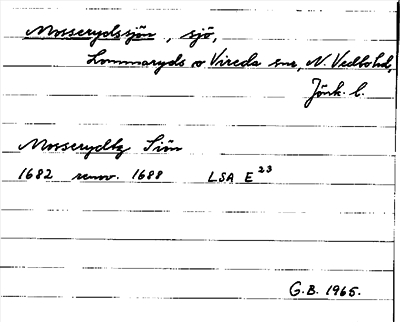 Mosserydssjön, sjö,
Lommaryds o Vireda snr, N. Vedbo hd,
Jönk. l.
Mosserydtz Siön
1682 renov. 1688 LSA E 23
G.B. 1965.